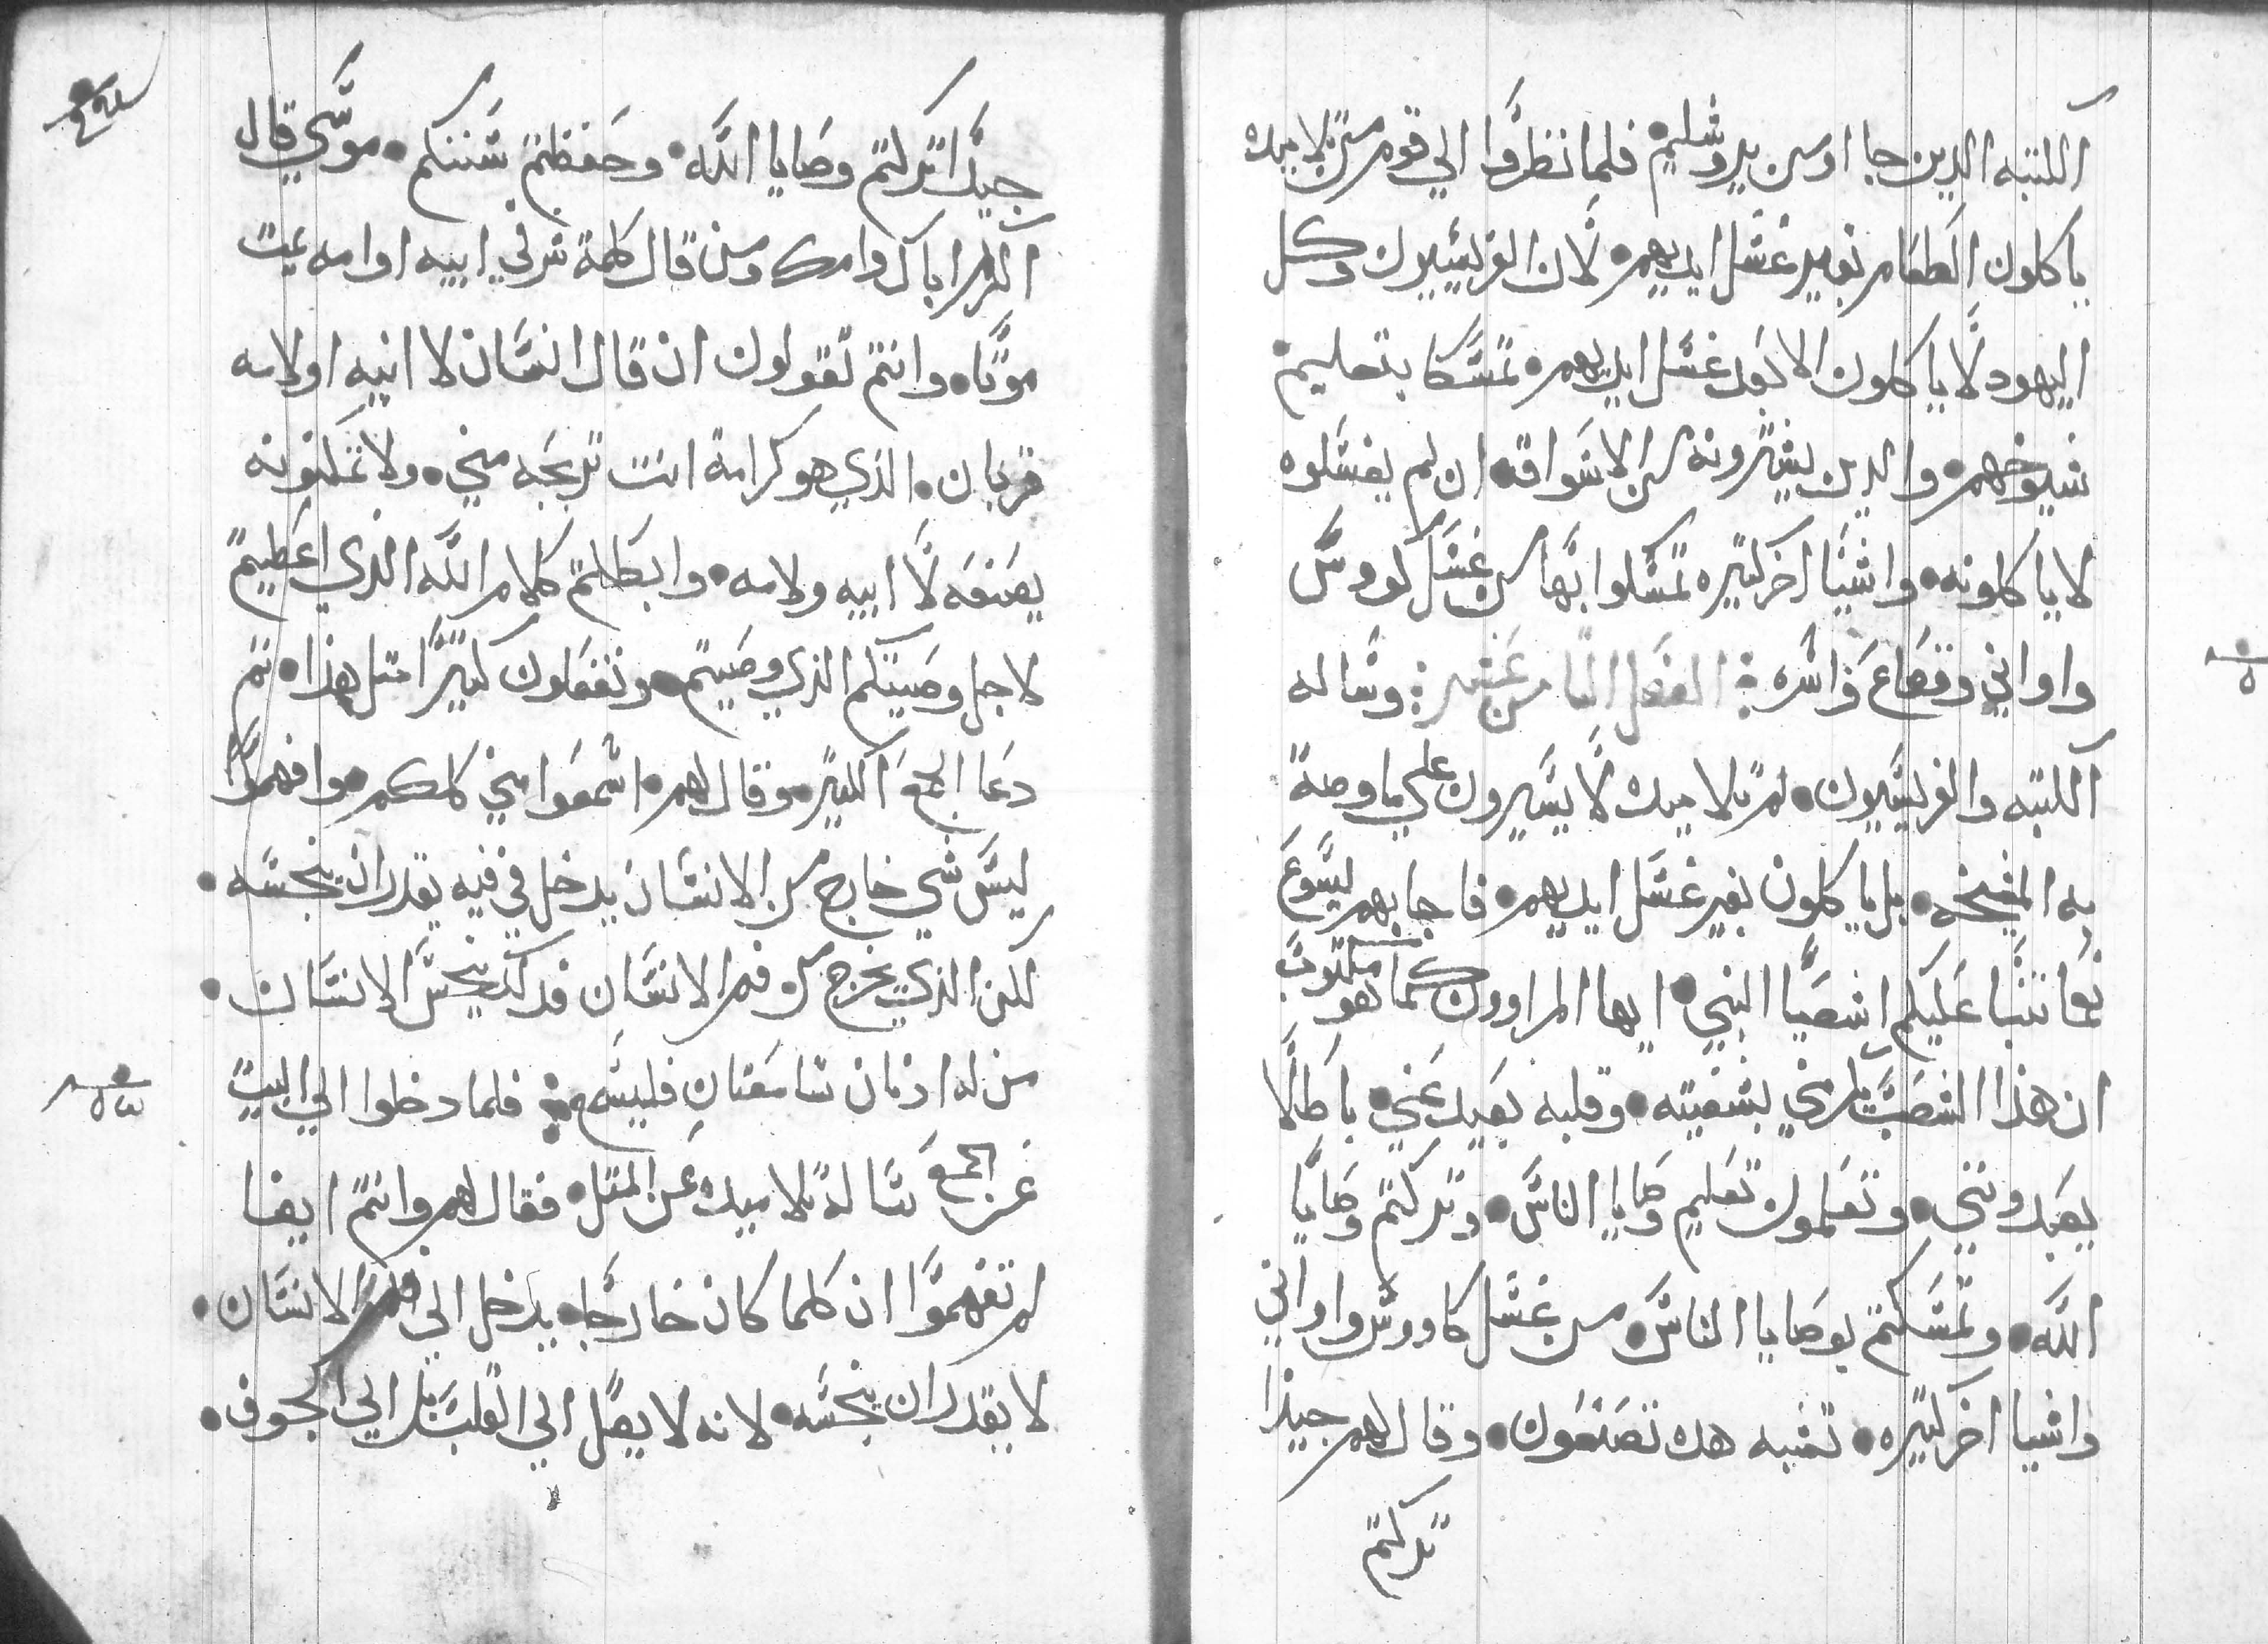 الكتبه الدين جا اوا من يروشليم فلما نظروا الي قوم من تلاميده
ياكلون الطعام بغير غسل ايديهم • لان الفريسيون وكل
اليهود لا ياكلون الا بعد غسل ايديهم • تمسكا بتعليم
شيوخهم • والدين يشترونه من الاسواق • ان لم يغسلوه
لا ياكلونه • واشيا اخر كتيره تمسكوا بها من غسل كووس
واواني وقصاع واسره ⁘ الفصل التامن عشر ⁘ وساله
الكتبه والفريسيون • لم تلاميدك لا يسيرون علي ما وصة
به المشيخه • بل ياكلون بغير غسل ايديهم • فاجابهم يسوع
نعما تنبا عليكم اشعيا النبي • ايها المراوون كما هو مكتوب
ان هذا الشعب يكرمني بشفيته • وقلبه بعيد عني • باطلا
يعبدونني • وتعلمون تعليم وصايا الناس • وتركتم وصايا
الله • وتمسكتم بوصايا الناس • من غسل كاووس واواني
واشيا اخر كتيره • تشبه هده تصنعون • وقال لهم جيدا
تركتم
جيدا تركتم وصايا الله • وحفظتم سننكم • موسي قال
اكرم اباك وامك ومن قال كلمة شر في ابيه او امه يمت
موتا • وانتم تقولون ان قال انسان لا ابيه او لامه
قربان • الذي هو كرامة انت تربحه مني • ولا تمكنونه
يصنعه لا ابيه ولامه • وابطلتم كلام الله الذي اعطيتم
لاجل وصيتكم الذي وصيتم • وتفعلون كتيرا متل هذا • تم
دعا الجمع الكتير • وقال لهم • اسمعوا مني كلمكم • وافهموا
ليس شي خارج من الانسان يدخل في فيه يقدر ان ينجسه •
لكن الذي يخرج من فم الانسان فدلك ينجس الانسان •
من له اذنان سامعتان فليسمع ⁘ فلما دخلوا الي البيت
عن الجمع ساله تلاميده عن المتل • فقال لهم وانتم ايضا
لم تفهموا ان كلما كان خارجا • يدخل الي فم الانسان •
لا يقدر ان ينجسه • لانه لا يصل الي القلب بل الي الجوف •